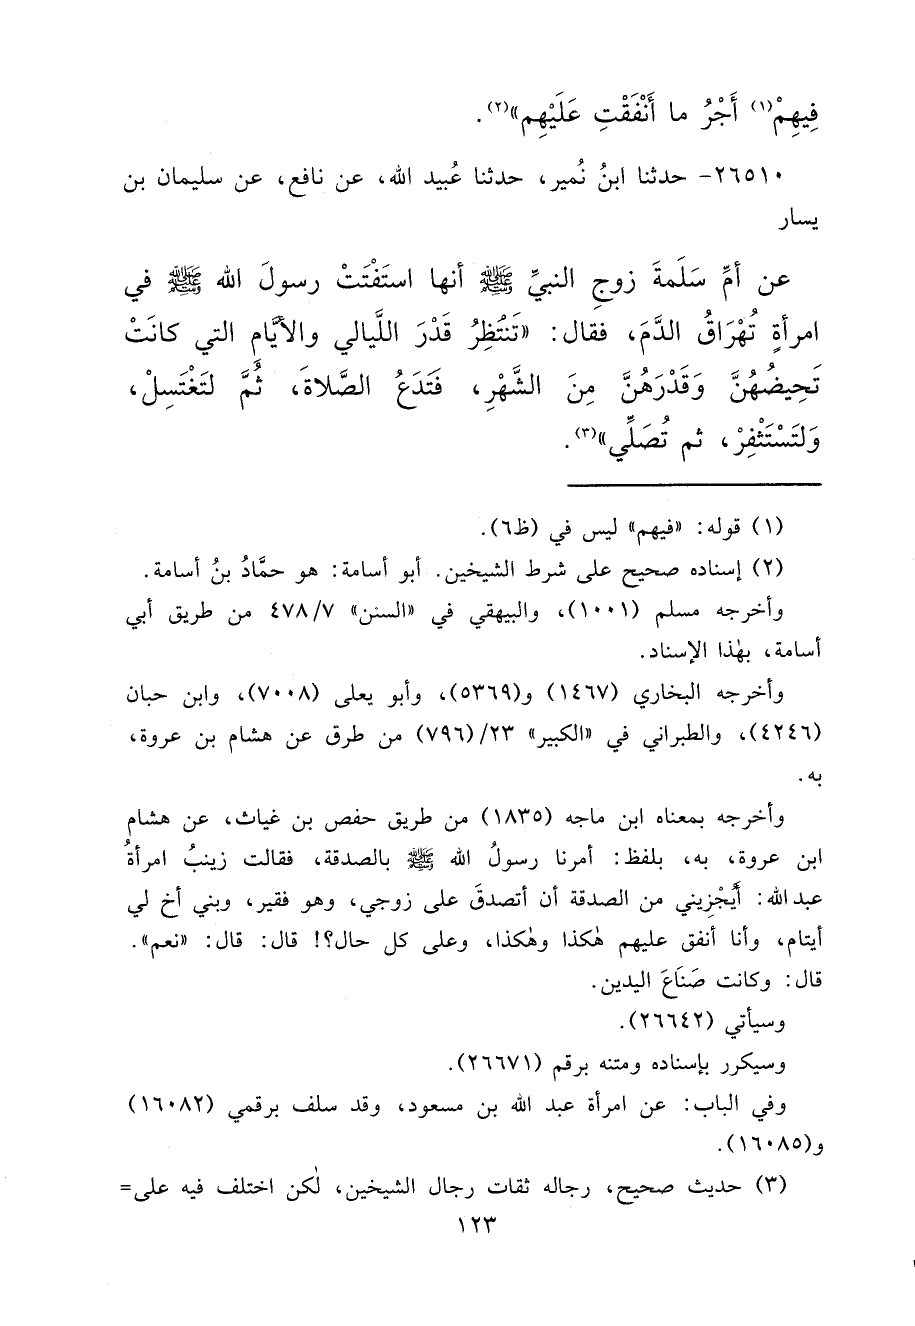 فِيهِمْ(١) أَجْرُ ما أَنْفَقْتِ عَلَيْهِم»(٢).
٢٦٥١٠- حدثنا ابنُ نُمير، حدثنا عُبيد الله، عن نافع، عن سليمان بن
يسار
عن أمِّ سَلَمةَ زوجِ النبيِّ ﷺ أنها استَفْتَتْ رسولَ الله ﷺ في
امرأةٍ تُهْرَاقُ الدَّمَ، فقال: «تَنْتُظِرُ قَدْرَ اللَّيالي والأيَّامِ التي كانَتْ
تَحِيضُهُنَّ وَقَدْرَهُنَّ مِنَ الشَّهْرِ، فَتَدَعُ الصَّلاةَ، ثُمَّ لتَغْتَسِلْ،
وَلتَسْتَثْفِرْ، ثم تُصَلِّي»(٣).
(١) قوله: «فيهم» ليس في (ظ٦).
(٢) إسناده صحيح على شرط الشيخين. أبو أسامة: هو حمَّادُ بنُ أسامة.
وأخرجه مسلم (١٠٠١)، والبيهقي في «السنن» ٤٧٨/٧ من طريق أبي
أسامة، بهٰذا الإسناد.
وأخرجه البخاري (١٤٦٧) و(٥٣٦٩)، وأبو يعلى (٧٠٠٨)، وابن حبان
(٤٢٤٦)، والطبراني في «الكبير» ٢٣/(٧٩٦) من طرق عن هشام بن عروة،
به.
وأخرجه بمعناه ابن ماجه (١٨٣٥) من طريق حفص بن غياث، عن هشام
ابن عروة، به، بلفظ: أمرنا رسولُ الله ﷺ بالصدقة، فقالت زينبُ امرأةُ
عبدالله: أَيُجْزِيني من الصدقة أن أتصدقَ على زوجي، وهو فقير، وبني أخ لي
أيتام، وأنا أنفق عليهم هٰكذا وهٰكذا، وعلى كل حال؟! قال: قال: «نعم».
قال: وكانت صَنَاعَ اليدين.
وسيأتي (٢٦٦٤٢).
وسيكرر بإسناده ومتنه برقم (٢٦٦٧١).
وفي الباب: عن امرأة عبد الله بن مسعود، وقد سلف برقمي (١٦٠٨٢)
و(١٦٠٨٥).
(٣) حديث صحيح، رجاله ثقات رجال الشيخين، لٰكن اختلف فيه على=
١٢٣